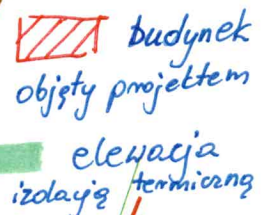 budynek
objęty projektem
elewacja
izolacją termiczną